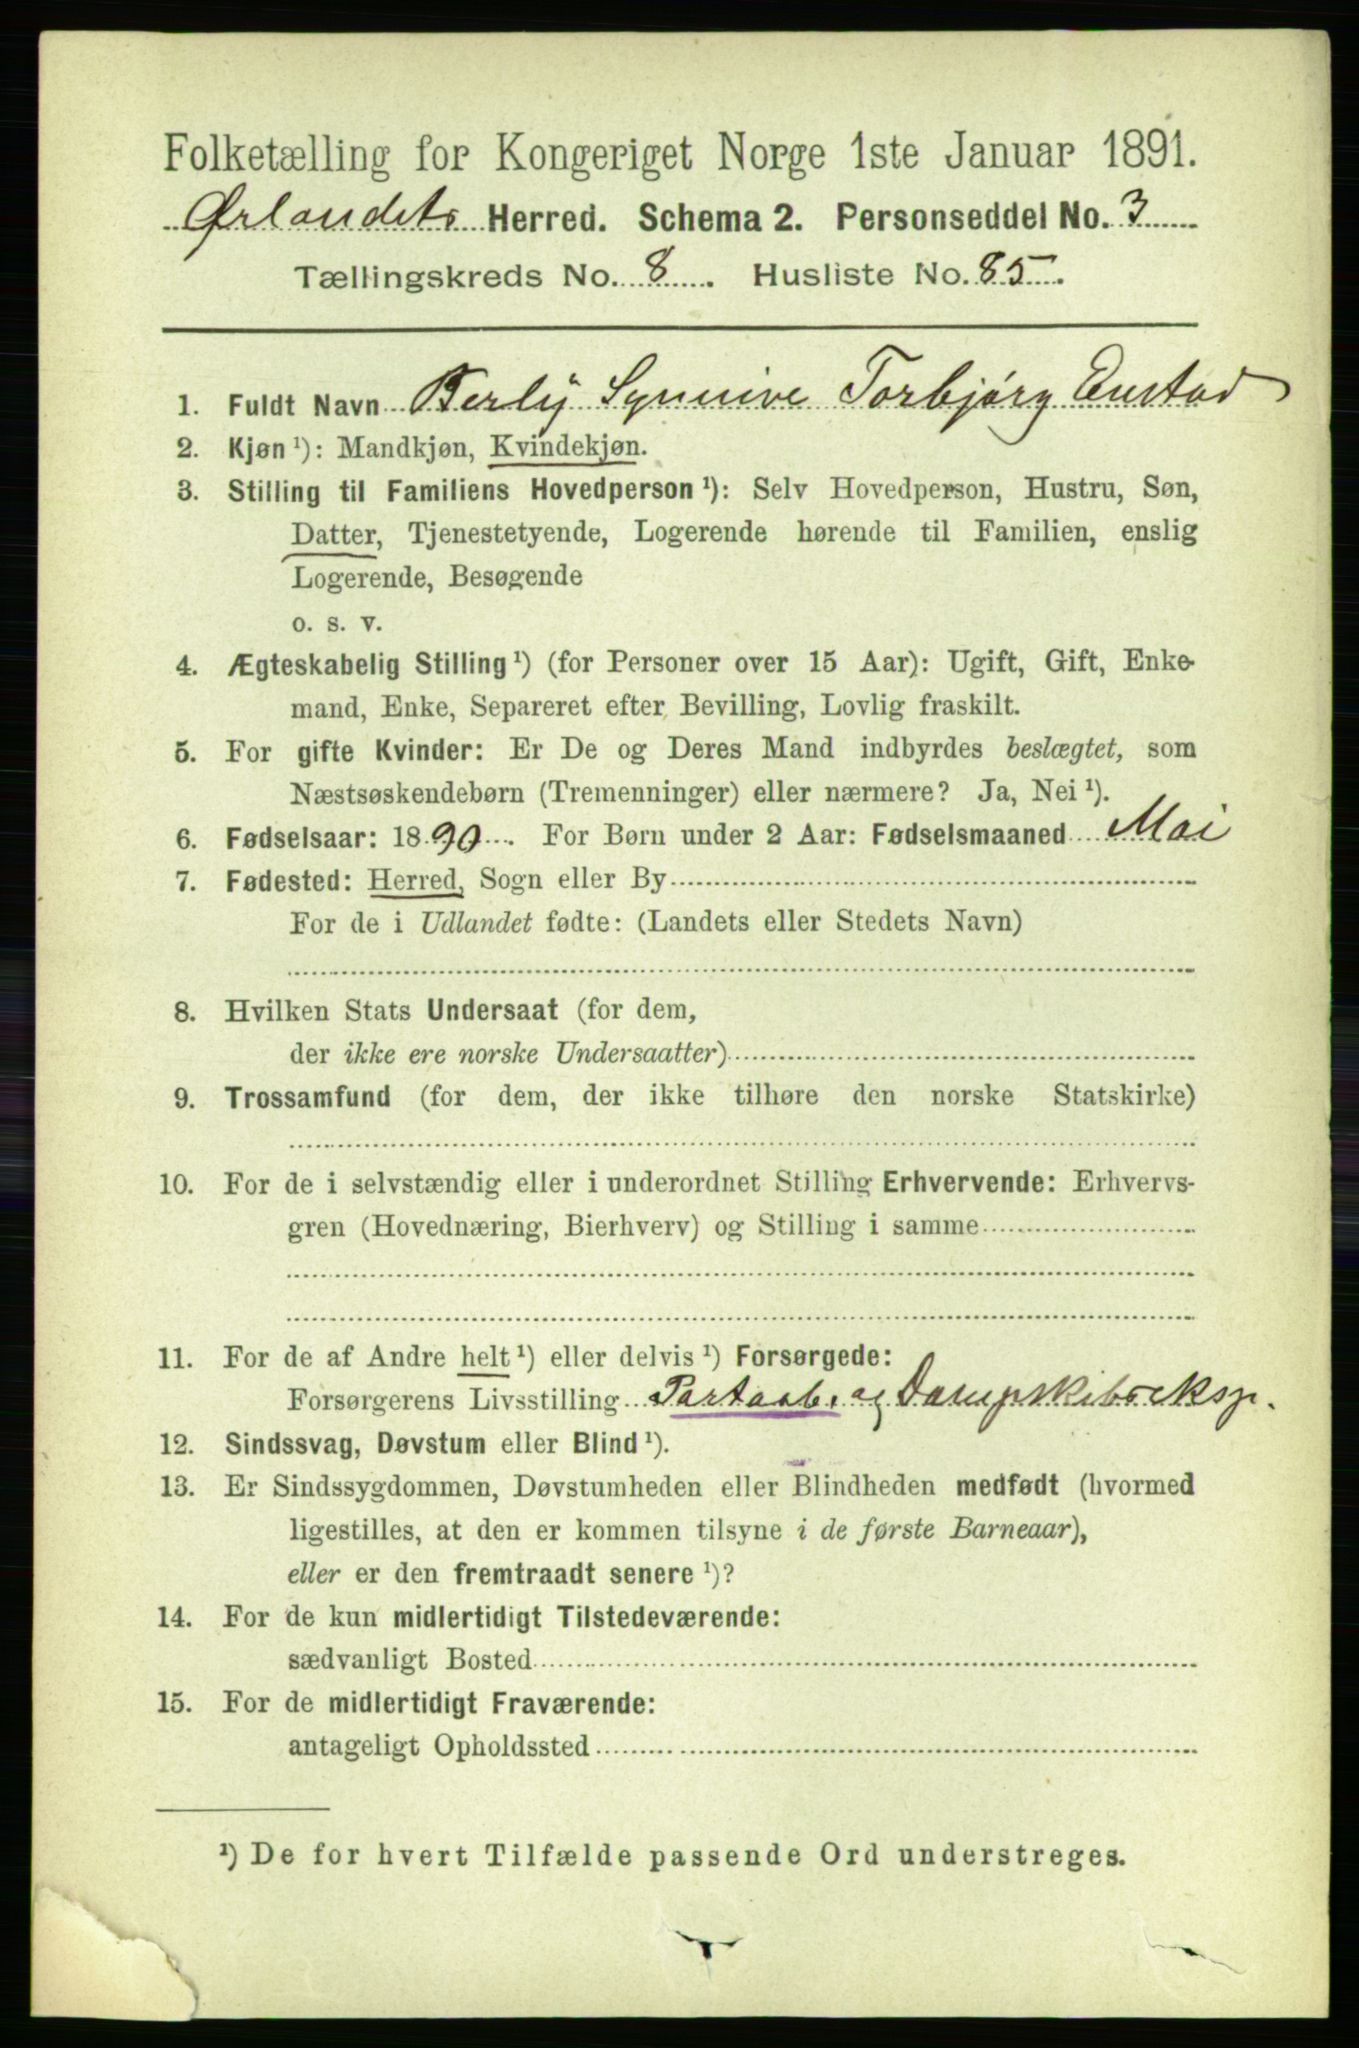 Folketælling for Kongeriget Norge 1ste Januar 1891.
Ørlandets Herred. Schema 2. Personseddel No. 3
Tællingskreds No. 8. Husliste No. 85.
1. Fuldt Navn Berly Synnive Torbjørg Enstad
2. Kjøn ¹): Mandkjøn, Kvindekjøn.
3. Stilling til Familiens Hovedperson ¹): Selv Hovedperson, Hustru, Søn,
Datter, Tjenestetyende, Logerende hørende til Familien, enslig
Logerende, Besøgende
o. s. v.
4. Ægteskabelig Stilling ¹) (for Personer over 15 Aar): Ugift, Gift, Enke-
mand, Enke, Separeret efter Bevilling, Lovlig fraskilt.
5. For gifte Kvinder: Er De og Deres Mand indbyrdes beslægtet, som
Næstsøskendebørn (Tremenninger) eller nærmere? Ja, Nei ¹).
6. Fødselsaar: 1890. For Børn under 2 Aar: Fødselsmaaned Mai
7. Fødested: Herred, Sogn eller By
For de i Udlandet fødte: (Landets eller Stedets Navn)
8. Hvilken Stats Undersaat (for dem,
der ikke ere norske Undersaatter)
9. Trossamfund (for dem, der ikke tilhøre den norske Statskirke)
10. For de i selvstændig eller i underordnet Stilling Erhvervende: Erhvervs-
gren (Hovednæring, Bierhverv) og Stilling i samme
11. For de af Andre helt ¹) eller delvis ¹) Forsørgede:
Forsørgerens Livsstilling Postaab. og Dampskibseksp.
12. Sindssvag, Døvstum eller Blind ¹).
13. Er Sindssygdommen, Døvstumheden eller Blindheden medfødt (hvormed
ligestilles, at den er kommen tilsyne i de første Barneaar),
eller er den fremtraadt senere ¹)?
14. For de kun midlertidigt Tilstedeværende:
sædvanligt Bosted
15. For de midlertidigt Fraværende:
antageligt Opholdssted
¹) De for hvert Tilfælde passende Ord understreges.